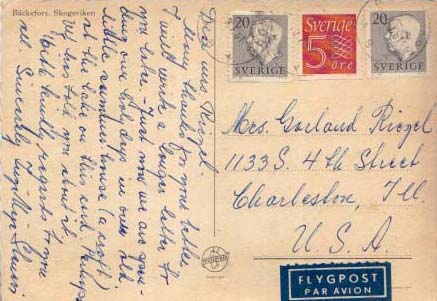 Bäckefors. Skogsviken
Dear Mrs Riegel -
Many thanks for your letter.
I will write a longer letter to
you later - Just now we are spen-
ding our holy days in our old
little summer house (a croft)
at the lake on this card. Perhaps
he has told you about it
With kindly regards to you
all. Sincerely
20
SVERIGE
Sverige
5
öre
20
SVERIGE
Mrs. Gorland Riegel
1133 S. 4th Street
Charleston, Ill.
U. S. A.
FLYGPOST
PAR AVION